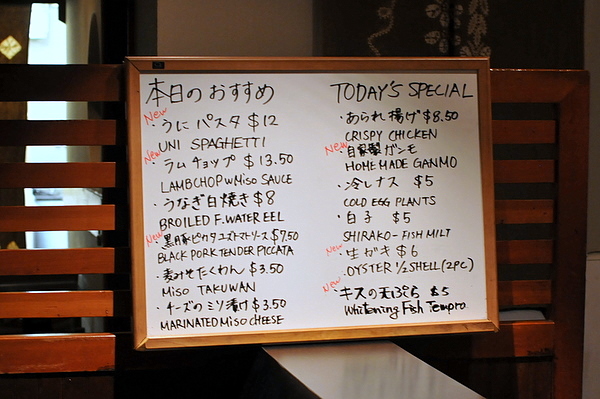 本日のおすすめ
New
・うに パスタ $12
UNI SPAGHETTI
New
・ラム チョップ $13.50
LAMBCHOP w Miso SAUCE
・うなぎ白焼き $8
BROILED F.WATER EEL
New
・黒豚ピカタ ユズトマトソース $7.50
BLACK PORK TENDER PICCATA
・麦みそたくわん $3.50
MISO TAKUWAN
・チーズのミソ漬け $3.50
MARINATED MISO CHEESE
TODAY'S SPECIAL
・あられ揚げ $8.50
CRISPY CHICKEN
New
・自家製ガンモ
HOMEMADE GANMO
・冷しナス $5
COLD EGG PLANTS
・白子 $5
SHIRAKO-FISH MILT
New
・生ガキ $6
OYSTER ½ SHELL (2PC)
New
・キスの天ぷら $5
Whitening Fish Tempra